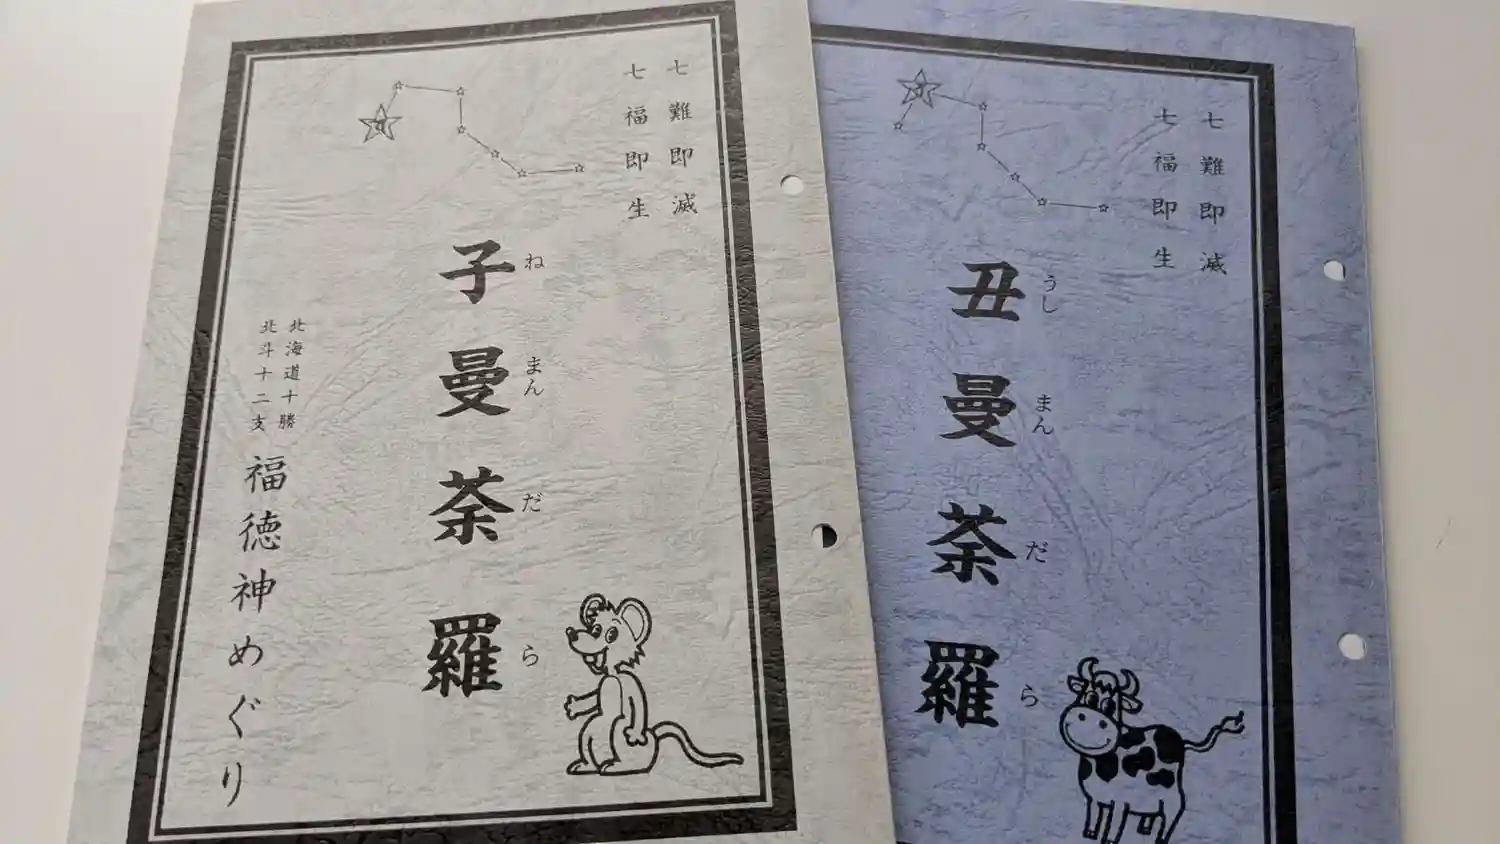 七難即滅
七福即生
子曼荼羅
ねまんだら
北海道十勝
北斗十二支
福徳神めぐり
七難即滅
七福即生
丑曼荼羅
うしまんだら